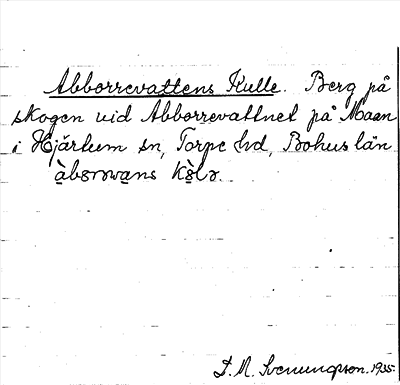 Abborrevattens Kulle. Berg på
skogen vid Abborrevattnet på Maan
i Hjärtum sn, Torpe hd, Bohus län
àbɷrwans kɷ̀lə.
D. M. Svenungsson. 1935.